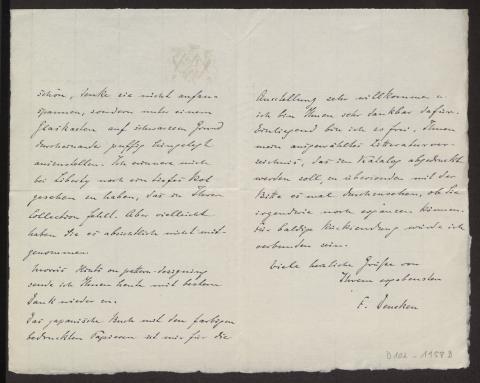 schön, denke sie nicht aufzu-
spannen, sondern unter einem
Glaskasten auf schwarzem Grund
durcheinander puffig hingelegt
auszustellen. Ich erinnere mich
bei Liberty noch ein tiefes Rot
gesehen zu haben, das in Ihrer
Collection fehlt. Aber vielleicht
haben Sie es absichtlich nicht mit-
genommen.
Morris Hints on pattern-designing
sende ich Ihnen heute mit bestem
Dank wieder zu.
Das japanische Buch mit den farbigen
bedruckten Papieren ist mir für die
Ausstellung sehr willkommen u.
ich bin Ihnen sehr dankbar dafür.
Einliegend bin ich so frei, Ihnen
mein ausgewähltes Litteraturver-
zeichnis, das im Katalog abgedruckt
werden soll, zu übersenden mit der
Bitte es mal durchzusehen, ob Sie
irgendwie noch ergänzen können.
Für baldige Rücksendung würde ich
verbunden sein.
Viele herzliche Grüße von
Ihrem ergebensten
F. Deneken
D102-1158 B